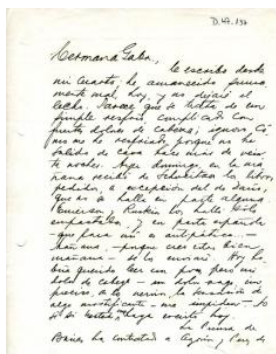 D.47.137
Hermana Gaba,
le escribo desde
mi cuarto; he amanecido
mente mal, hoy, y no dejaré el
lecho. Parece que se trata de un
simple resfrío, complicado con
fuerte dolor de cabeza; ignoro có
mo me he resfriado porque no he
salido de casa hace más de
te noches. Ayer domingo, en la ma
ñana recibí de los libros
pedidos, a excepción del de Darío,
que no se halla en parte alguna.
Emerson y Ruskin los hallé sólo
empastados, y en parte española
que para mí es antipática.
mañana, porque creo estar bien
mañana - se lo enviaré. Hoy ha
bría querido leer un poco pero mi
dolor de cabeza - un dolor vago, im
preciso, a lo
algo mortificante - me impiden. No
sé si haya escrito hoy.
La Prensa de
Baires ha contratado a y Pérez de